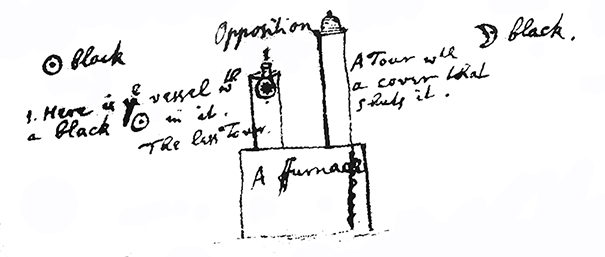 Opposition
☉ black
1. Here is yᵉ vessel wᵗʰ
a black ☉ in it.
The less Tower.
A Tour wth
a cover that
shuts it.
☽ black.
A ffurnace